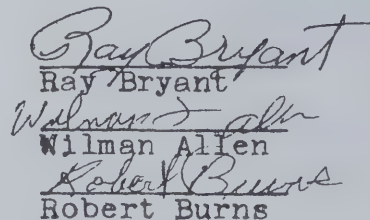 Ray Bryant
Ray Bryant
Wilman Allen
Wilman Allen
Robert Burns
Robert Burns